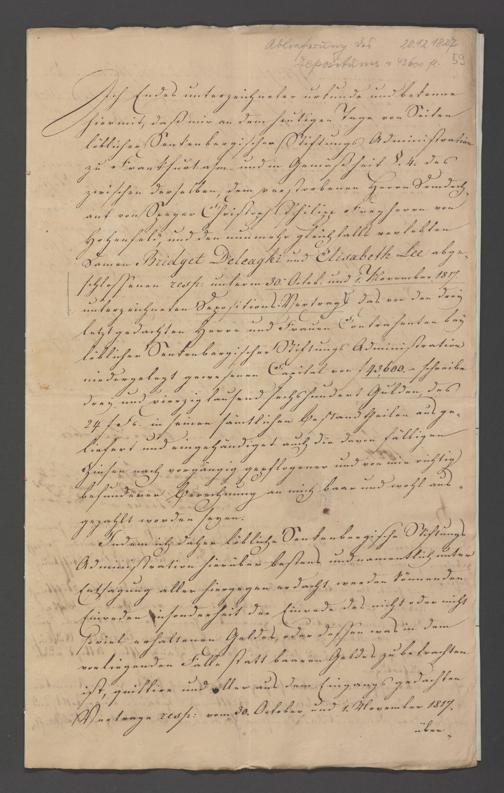 Ablieferung des 20.12.1827
Depositums v 43600 fl. 59
Ich Endes unterzeichneter urkunde und bekenne
hiermit, daß mir an dem heutigen Tage von Seiten
löblicher Senkenbergischer Stiftungs Administration
zu Frankfurt a/m und in Gemäßheit § 4. des
zwischen derselben, dem verstorbenen Herrn
von Speyer Christoph Philipp Freyherrn von
und den nunmehr gleichfalls verlebten
Damen Bridget Deleaghi und Elisabeth Lee abge-
schlossenen resp: unterm 30. Octob. und 1. November 1817
unterzeichneten Depositions Vertrags das von den drey
letztgedachten Herrn und Frauen Contrahenten bey
löblicher Senkenbergischer Stiftungs Administration
niedergelegt gewesenen Capital von f 43600. – schreibe
drey und vierzig tausend sechshundert Gulden des
24 f. Fs. in seinen sämtlichen Bestandtheilen ausge-
liefert und eingehändiget auch die davon fälligen
Zinsen nach vorgängig gepflogener und von mir richtig
befundener Berechnung an mich baar und wohl aus-
gezahlt worden seyen.
Indem ich daher löbliche Senkenbergische Stiftungs
Administration hierüber bestens und namentlich unter
Entsagung aller hiergegen erdacht werden könnenden
Einreden insonderheit der Einrede des nicht oder nicht
soviel erhaltenen Geldes, oder dessen was in dem
vorliegenden Falle statt baaren Geldes zu betrachten
ist, quittire und aller aus dem Eingangs gedachten
Vertrage resp: vom 30. October und 1. November 1817.
über-